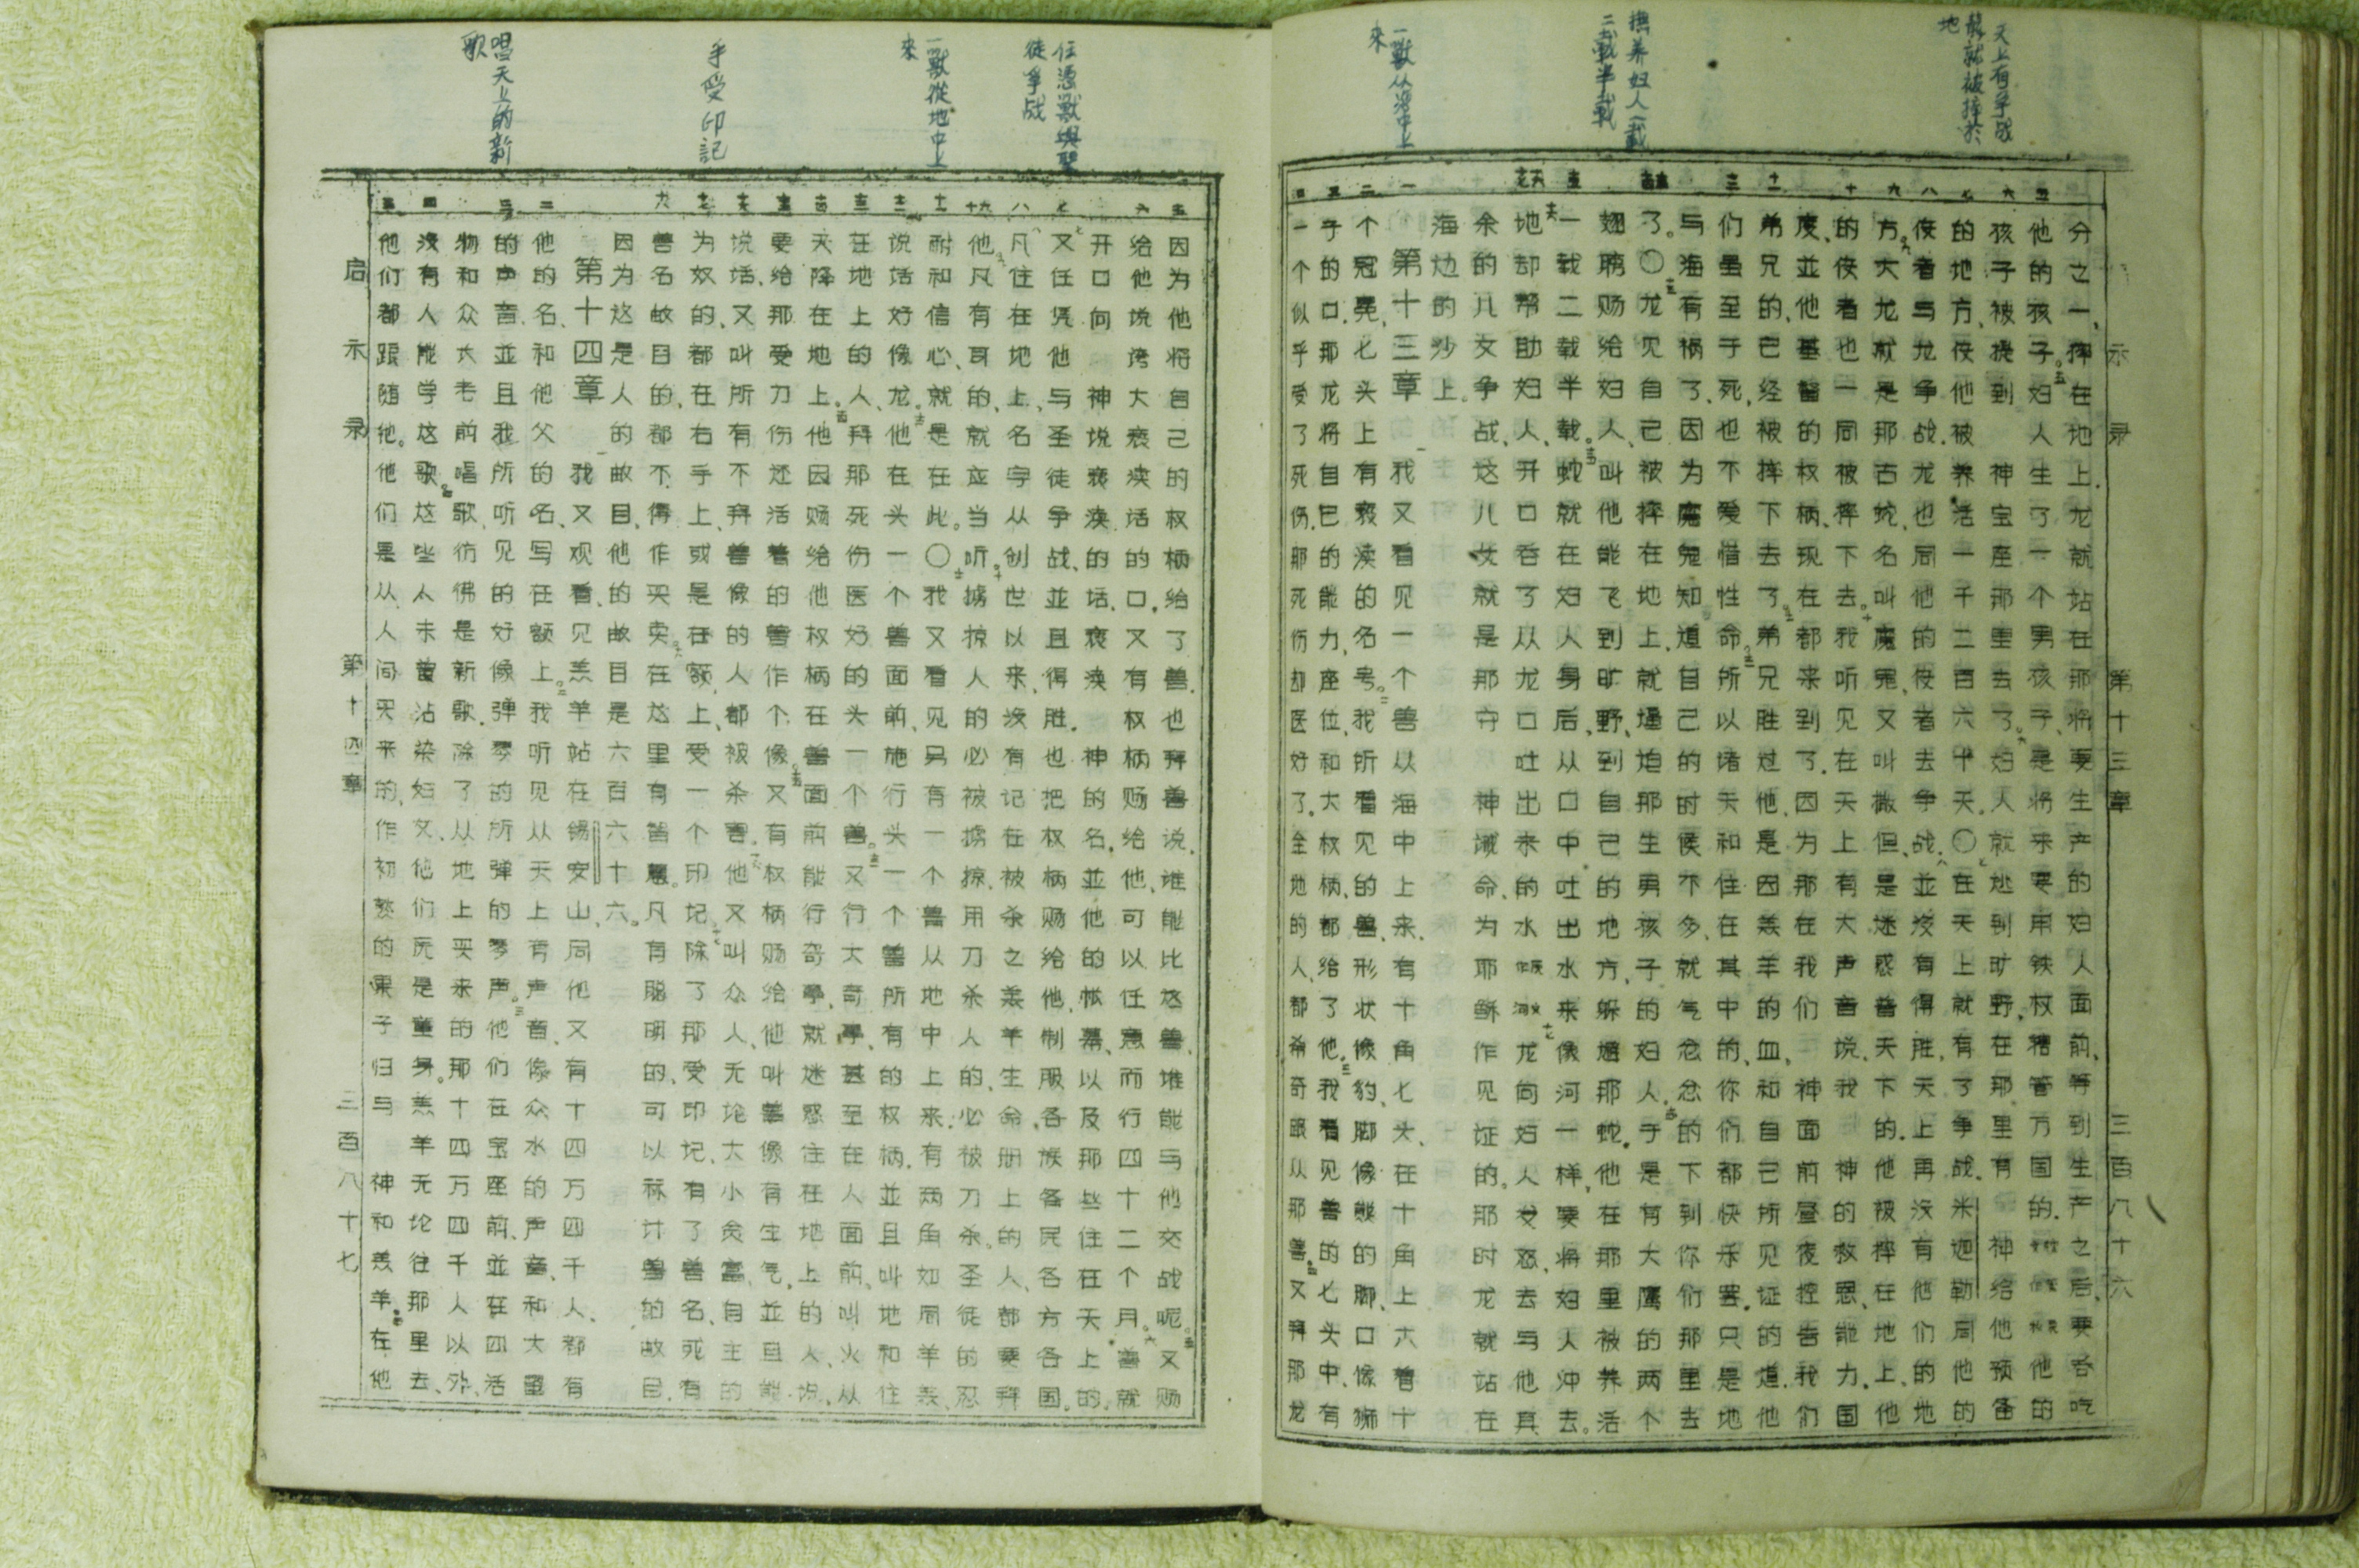 天上有争战
龍就被摔於
地
撫养妇人一載
二載半載
一獸从海中上
來
五
六
七
八
九
十
十一
三
一
二
三
四
分之一、摔在地上.龙就站在那将要生产的妇人面前、等到生产之后、要吞吃
他的孩子。妇人生了一个男孩子、是将来要用铁杖辖管万国的.他的
孩子被提到 神宝座那里去了。妇人就逃到旷野,在那里有 神给他预备
的地方、使他被养活一千二百六十天.〇在天上就有了争战.米迦勒同他的
使者与龙争战.龙也同他的使者去争战、並没有得胜、天上再没有他们的地
方。大龙就是那古蛇、名叫魔鬼、又叫撒但、是迷惑普天下的.他被摔在地上、他
的使者也一同被摔下去。我听见在天上有大声音说、我 神的救恩、能力、国
度、並他基督的权柄、现在都来到了.因为那在我们 神面前昼夜控告我们
弟兄的、已经被摔下去了、弟兄胜过他、是因羔羊的血、和自己所见证的道.他
们虽至于死、也不爱惜性命。所以诸天和住在其中的、你们都快乐罢.只是地
与海有祸了、因为魔鬼知道自己的时候不多、就气忿忿的下到你们那里去
了。〇龙见自己被摔在地上、就逼迫那生男孩子的妇人。于是有大鹰的两个
翅膀赐给妇人、叫他能飞到旷野、到自己的地方躲避那蛇.他在那里被养活
一载二载半载。蛇就在妇人身后、从口中吐出水来像河一样,要将妇人冲去。
地却帮助妇人、开口吞了从龙口吐出来的水。龙向妇人发怒、去与他其
余的儿女争战、这儿女就是那守 神诫命、为耶稣作见证的。那时龙就站在
海边的沙上。
第十三章 我又看见一个兽从海中上来、有十角七头、在十角上六着十
个冠冕、七头上有亵渎的名号。我所看见的兽、形状像豹、脚像熊的脚、口像狮
子的口.那龙将自己的能力座位、和大权柄、都给了他。我看见兽的七头中、有
一个似乎受了死伤、那死伤却医好了.全地的人都希奇跟从那兽、又拜那龙
示录 第十三章 三百八十六
任憑獸與聖
徒爭战
一獸從地中上
來
手受印記
唱天上的新
歌
因为他将自己的权柄给了兽.也拜兽说.谁能比这兽、谁能与他交战呢。又赐
给他说夸大亵渎话的口.又有权柄赐给他、可以任意而行四十二个月。兽就
开口向 神说亵渎的话、亵渎 神的名.並他的帐幕、以及那些住在天上的.
又任凭他与圣徒争战、並且得胜.也把权柄赐给他、制服各族各民各方各国。
凡住在地上、名字从创世以来、没有记在被杀之羔羊生命册上的人、都要拜
他。凡有耳的、就应当听。掳掠人的必被掳掠、用刀杀人的、必被刀杀。圣徒的忍
耐和信心、就是在此。〇我又看见另有一个兽从地中上来.有两角如同羊羔、
说话好像龙。他在头一个兽面前、施行头一个兽所有的权柄.並且叫地和住
在地上的人、拜那死伤医好的头一个兽。又行大奇事、甚至在人面前、叫火从
天降在地上。他因赐给他权柄在兽面前能行奇事、就迷惑住在地上的人、说、
要给那受刀伤还活着的兽作个像。又有权柄赐给他叫兽像有生气、並且能
说话、又叫所有不拜兽像的人都被杀害。他又叫众人、无论大小贫富、自主的
为奴的、都在右手上、或是在额上、受一个印记。除了那受印记、有了兽名、或有
兽名数目的、都不得作买卖。在这里有智慧。凡有聪明的、可以称计兽的数目、
因为这是人的数目、他的数目是六百六十六。
第十四章 我又观看、见羔羊站在锡安山、周他又有十四万四千人、都有
他的名、和他父的名、写在额上。我听见从天上有声音、像众水的声音、和大雷
的声音.並且我所听见的好像弹琴的所弹的琴声。他们在宝座前、並在四活
物和众大老前唱歌、仿佛是新歌.除了从地上买来的那十四万四千人以外、
没有人能学这歌。这些人未曾沾染妇女、他们原是童身。羔羊无论往那里去、
他们都跟随他。他们是从人间买来的、作初熟的果子归与 神和羔羊。在他
启示录 第十四章 三百八十七